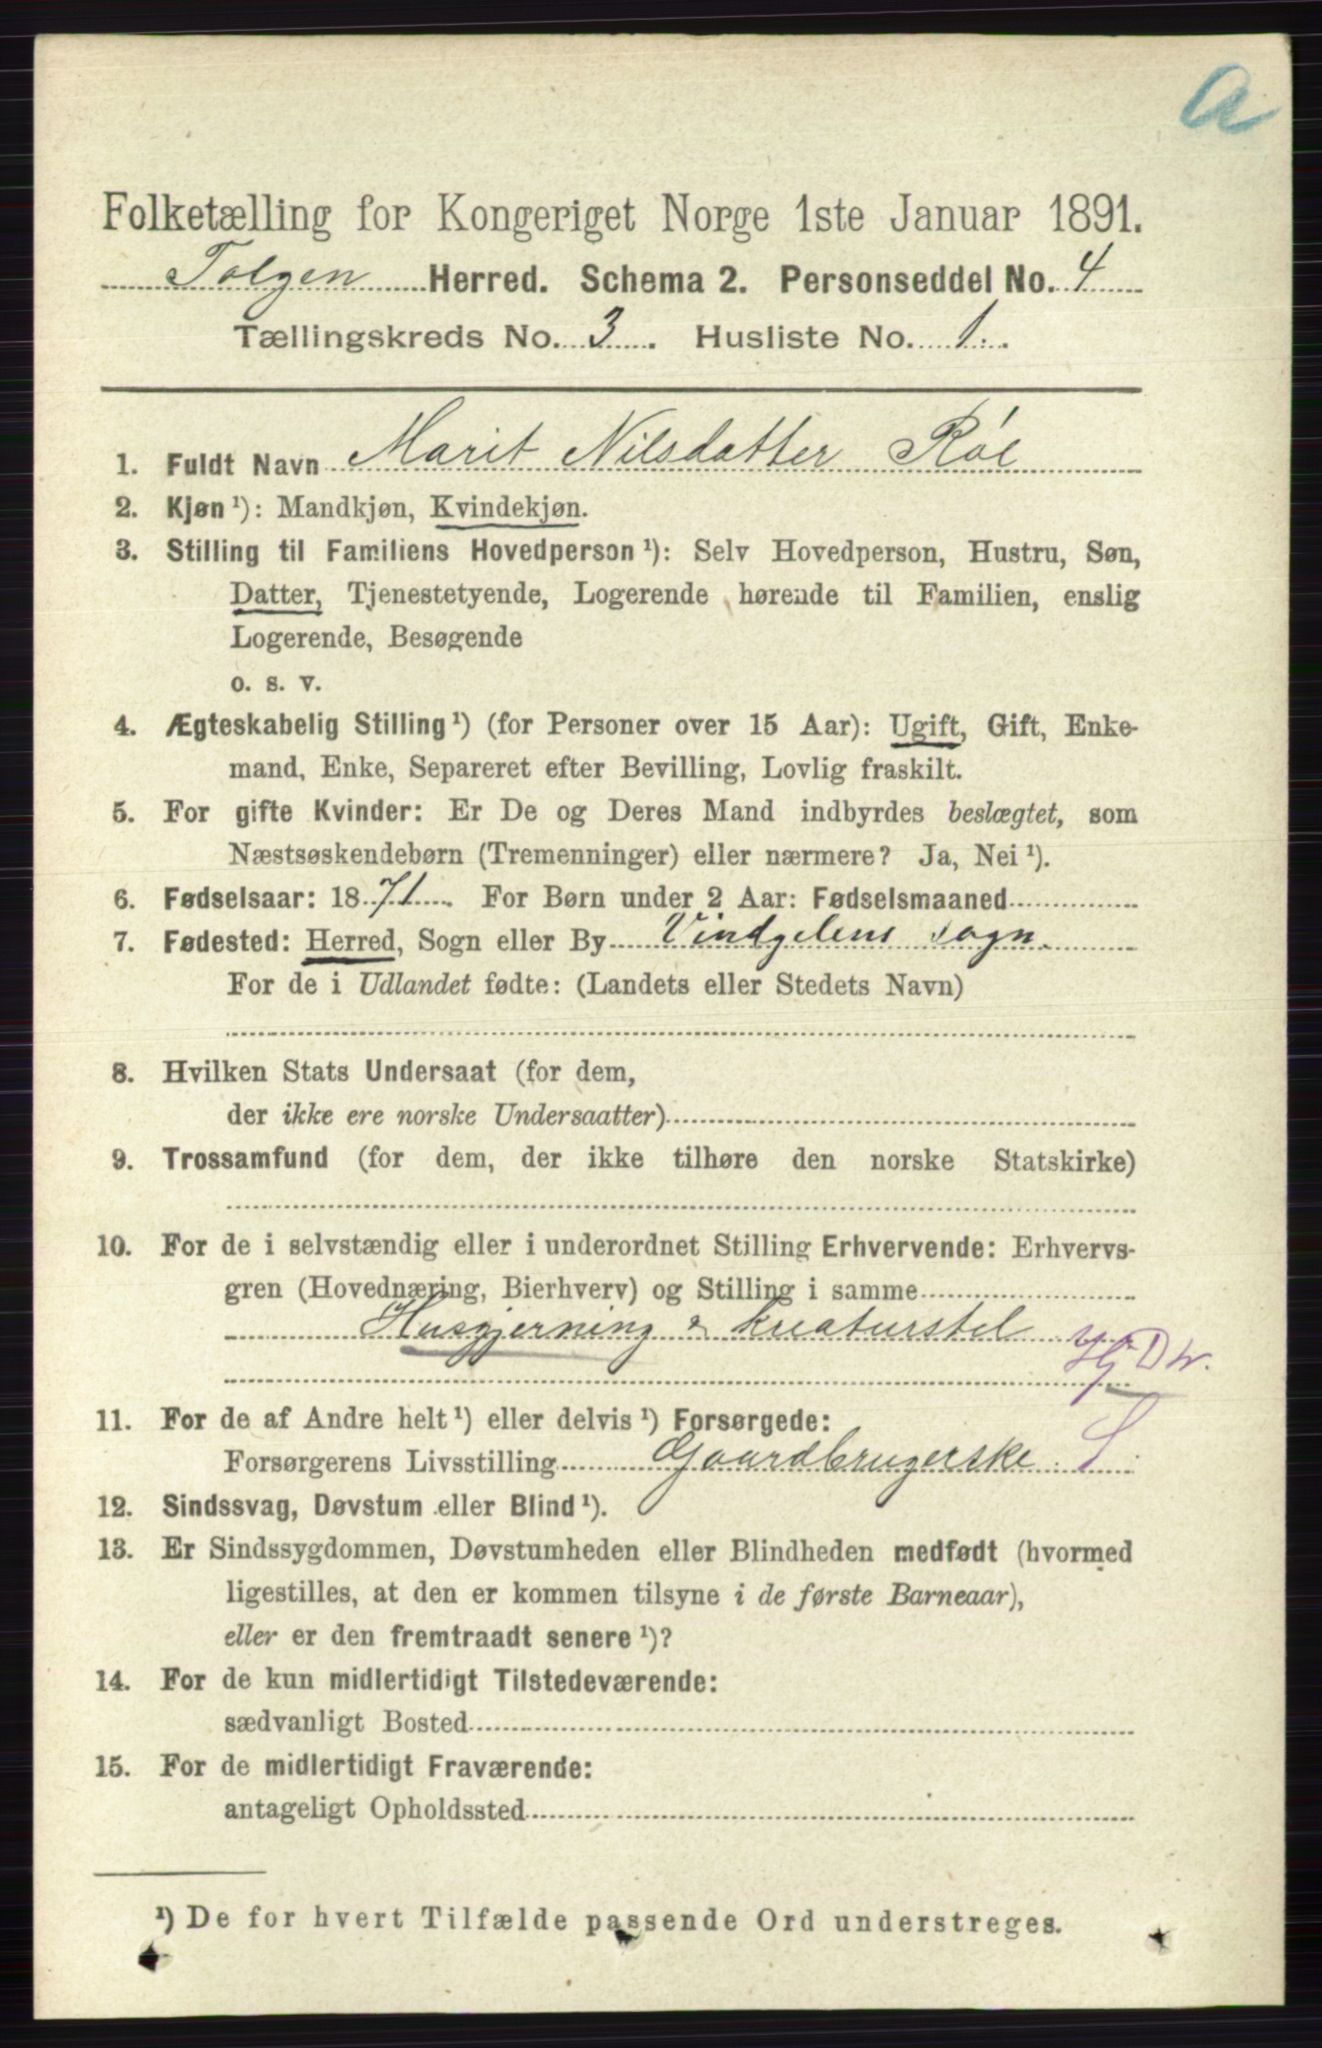 a
Folketælling for Kongeriget Norge 1ste Januar 1891.
Tolgen Herred. Schema 2. Personseddel No. 4
Tællingskreds No. 3. Husliste No. 1.
1. Fuldt Navn Marit Nilsdatter Röe
2. Kjøn ¹): Mandkjøn, Kvindekjøn.
3. Stilling til Familiens Hovedperson ¹): Selv Hovedperson, Hustru, Søn,
Datter, Tjenestetyende, Logerende hørende til Familien, enslig
Logerende, Besøgende
o. s. v.
4. Ægteskabelig Stilling ¹) (for Personer over 15 Aar): Ugift, Gift, Enke-
mand, Enke, Separeret efter Bevilling, Lovlig fraskilt.
5. For gifte Kvinder: Er De og Deres Mand indbyrdes beslægtet, som
Næstsøskendebørn (Tremenninger) eller nærmere? Ja, Nei ¹).
6. Fødselsaar: 1871. For Børn under 2 Aar: Fødselsmaaned
7. Fødested: Herred, Sogn eller By Vindgelens sogn.
For de i Udlandet fødte: (Landets eller Stedets Navn)
8. Hvilken Stats Undersaat (for dem,
der ikke ere norske Undersaatter)
9. Trossamfund (for dem, der ikke tilhøre den norske Statskirke)
10. For de i selvstændig eller i underordnet Stilling Erhvervende: Erhvervs-
gren (Hovednæring, Bierhverv) og Stilling i samme
Husgjerning & kreaturstel
Hj Dtr.
11. For de af Andre helt ¹) eller delvis ¹) Forsørgede:
Forsørgerens Livsstilling Gaardbrugerske S
12. Sindssvag, Døvstum eller Blind ¹).
13. Er Sindssygdommen, Døvstumheden eller Blindheden medfødt (hvormed
ligestilles, at den er kommen tilsyne i de første Barneaar),
eller er den fremtraadt senere ¹)?
14. For de kun midlertidigt Tilstedeværende:
sædvanligt Bosted
15. For de midlertidigt Fraværende:
antageligt Opholdssted
¹) De for hvert Tilfælde passende Ord understreges.